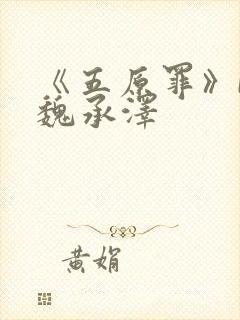 《五原罪》
魏承泽
黄娟